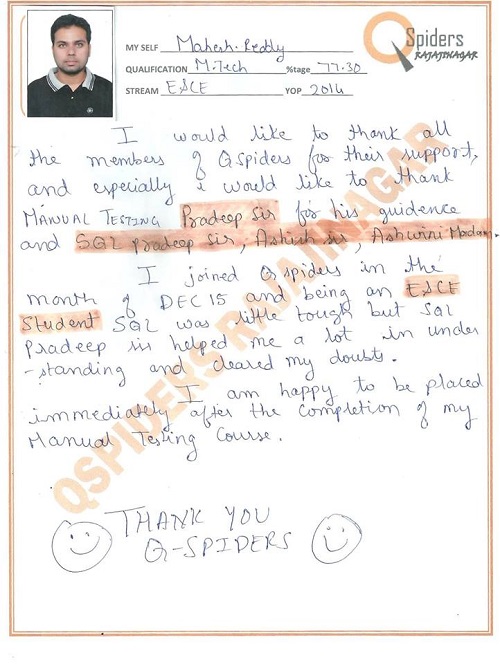 Q Spiders
RAJAJINAGAR
MY SELF Mahesh. Reddy
QUALIFICATION M.Tech %tage 77.30
STREAM E&CE YOP 2014
I would like to thank all
the members of QSpiders for their support,
and especially i would like to thank
MANUAL TESTING Pradeep sir for his guidence
and SQL pradeep sir, Ashish sir, Ashwini Madam.
I joined Qspiders in the
month of DEC 15 and being an E&CE
Student SQL was little tough but SQL
Pradeep sir helped me a lot in under
-standing and cleared my doubts.
I am happy to be placed
immediately after the completion of my
Manual Testing Course.
THANK YOU
Q-SPIDERS
QSPIDERS RAJAJINAGAR